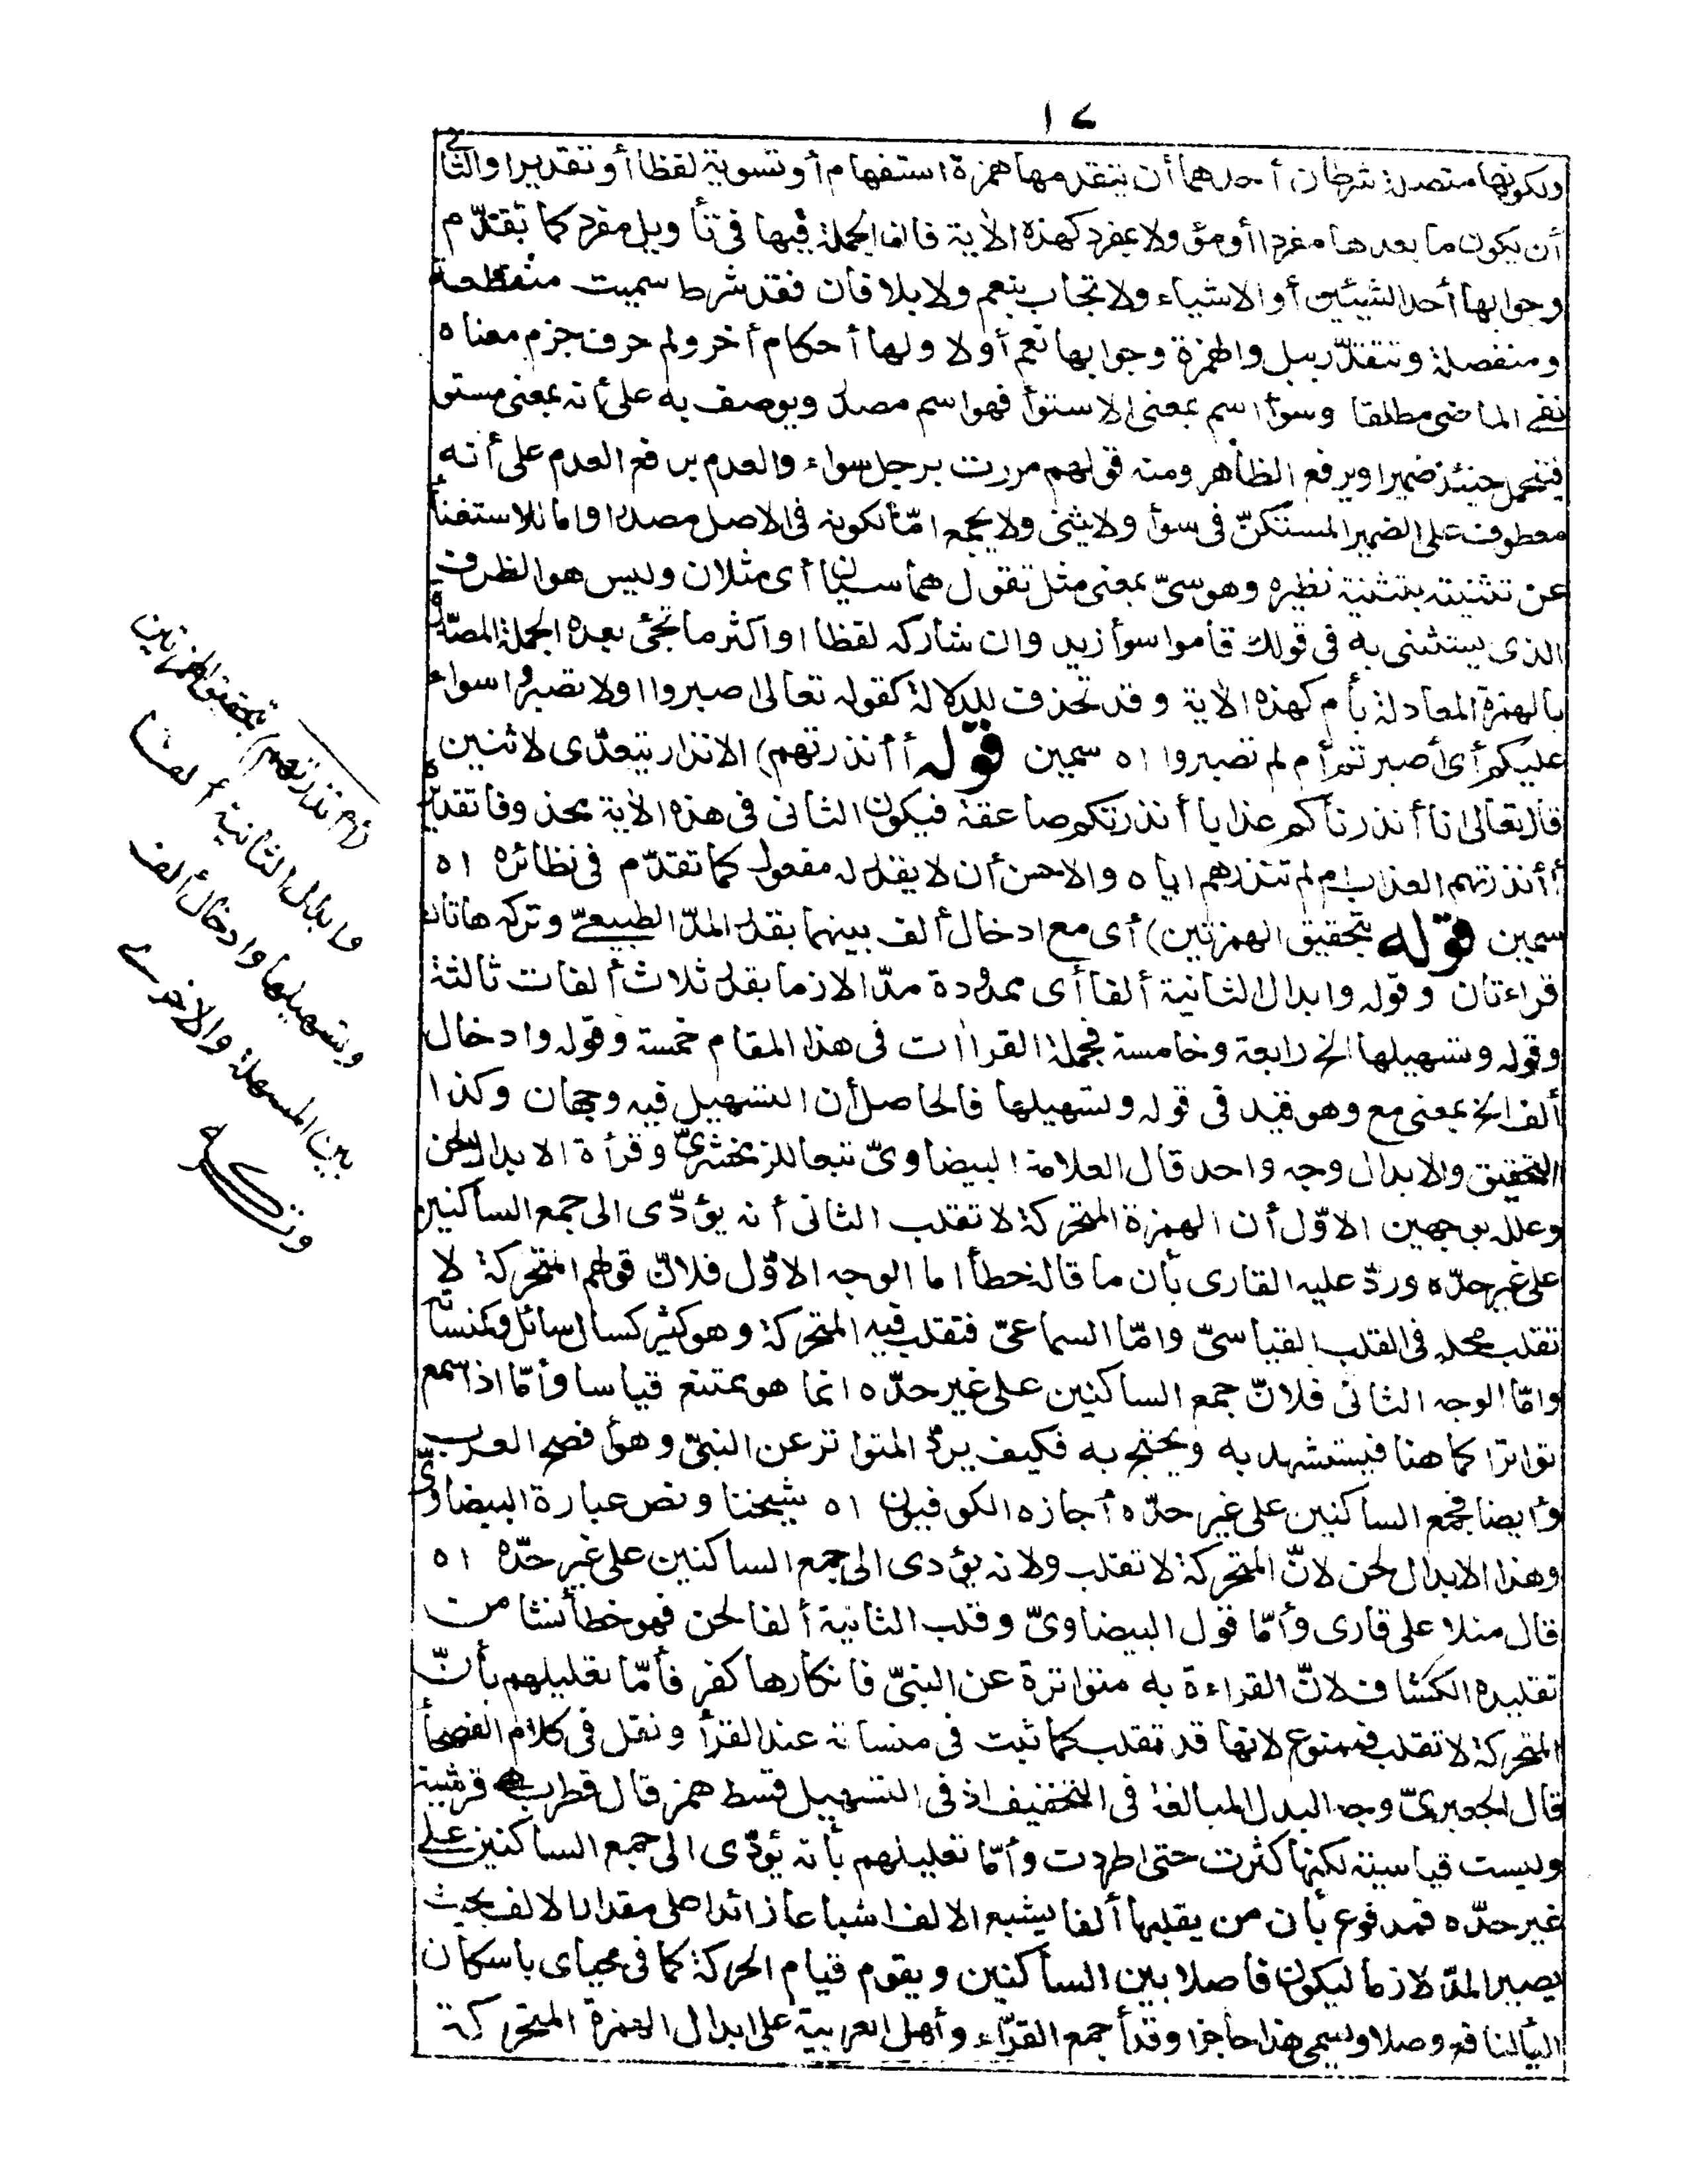 ١٧
ولكونها متصلة شرطان أحدهما أن يتقدمها همزة استفهام أو تسوية لفظا أو تقديرا والثاني
أن يكون ما بعدها مفردا أو مؤولا بمفرد كهذه الآية فان الجملة فيها في تأويل مفرد كما تقدّم
وجوابها أحد الشيئين أو الاشياء ولا تجاب بنعم ولا بلا فان فقد شرط سميت منقطعة
ومنفصلة وتتقدّر ببل والهمزة وجوابها نعم أو لا ولها أحكام أخر ولم حرف جزم معناه
نفي الماضي مطلقا وسوأ اسم بمعنى الاستوأ فهو اسم مصدر ويوصف به على أنه بمعنى مستو
فيتحمل حينئذ ضميرا ويرفع الظاهر ومنه قولهم مررت برجل سواء والعدم برفع العدم على أنه
معطوف على الضمير المستكنّ في سوأ ولا يثنى ولا يجمع امّا لكونه في الاصل مصدرا واما للاستغنأ
عن تثنيته بتثنية نظيره وهو سيّ بمعنى مثل تقول هما سيان أي مثلان وليس هو الظرف
الذي يستثنى به في قولك قاموا سوأ زيد وان شاركه لفظا واكثر ما تجئ بعده الجملة المصدّرة
بالهمزة المعادلة بأم كهذه الآية وقد تحذف للدلالة كقوله تعالى اصبروا اولا تصبروا سواء
عليكم أي أصبرتم أم لم تصبروا اه سمين قوله أأنذرتهم) الانذار يتعدّى لاثنين
قال تعالى انا أنذرناكم عذابا أنذرتكم صاعقة فيكون الثاني في هذه الآية محذوفا تقديره
أأنذرتهم العذاب أم لم تنذرهم اياه والاحسن أن لا يقدر له مفعول كما تقدّم في نظائره اه
سمين قوله بتحقيق الهمزتين) أي مع ادخال ألف بينهما بقدر المدّ الطبيعيّ وتركه هاتان
قراءتان وقوله وابدال الثانية ألفا أي ممدودة مدّا لازما بقدر ثلاث ألفات ثالثة
وقوله وتسهيلها الخ رابعة وخامسة فجملة القراات في هذا المقام خمسة وقوله وادخال
ألف الخ بمعنى مع وهو قيد في قوله وتسهيلها فالحاصل أن التسهيل فيه وجهان وكذا
التحقيق والابدال وجه واحد قال العلامة البيضاويّ تبعا للزمخشريّ وقرأة الابدال لحن
وعلله بوجهين الاوّل أن الهمزة المتحركة لا تقلب الثاني أنه يؤدّى الى جمع الساكنين
على غير حدّه وردّ عليه القاري بأن ما قاله خطأ اما الوجه الاوّل فلانّ قولهم المتحركة لا
تقلب محله في القلب القياسيّ وامّا السماعيّ فتقلب فيه المتحركة وهو كثير كسال سائل وكمنساته
وامّا الوجه الثاني فلانّ جمع الساكنين على غير حدّه انما هو ممتنع قياسا وأمّا اذا سمع
تواترا كما هنا فيستشهد به ويحتج به فكيف يردّ المتواتر عن النبيّ وهو أفصح العرب
وأيضا فجمع الساكنين على غير حدّه أجازه الكوفيون اه شيخنا ونص عبارة البيضاويّ
وهذا الابدال لحن لانّ المتحركة لا تقلب ولانه يؤدى الى جمع الساكنين على غير حدّه اه
قال منلا على قارى وأمّا قول البيضاويّ وقلب الثانية ألفا لحن فهو خطأ نشا من
تقليده الكشاف لانّ القراءة به متواترة عن النبيّ فانكارها كفر فأمّا تعليلهم بأنّ
المتحركة لا تقلب فممنوع لانها قد تقلب كما ثبت في منساته عند القرأ ونقل في كلام الفصحأ
قال الجعبريّ وجه البدل المبالغة في التخفيف اذ في التسهيل قسط همز قال قطرب قرشية
وليست قياسية لكنها كثرت حتى اطردت وأمّا تعليلهم بأنه يؤدّى الى جمع الساكنين على
غير حدّه فمدفوع بأن من يقلبها ألفا يشبع الالف اشباعا زائدا على مقدار الالف بحيث
يصير المدّ لازما ليكون فاصلا بين الساكنين ويقوم قيام الحركة كما في محياي باسكان
اليأ لنافع وصلا ويسمى هذا حاجزا وقد أجمع القرّاء وأهل العربية على ابدال الهمزة المتحركة
(أم تنذرهم) بتحقيق الهمزتين
وابدال الثانية ألفا
وتسهيلها وادخال ألف
بين المسهلة والاخرى
وتركه